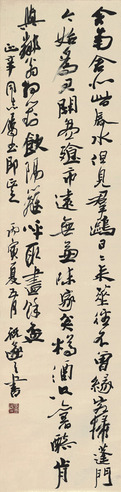 舍南舍北皆春水但見群鷗日日來花徑不曾緣客掃蓬門
今始為君開盤飧市遠無兼味家貧樽酒只舊醅肯
與鄰翁相對飲隔籬呼取盡餘杯
同志屬正 丙寅夏五月 書